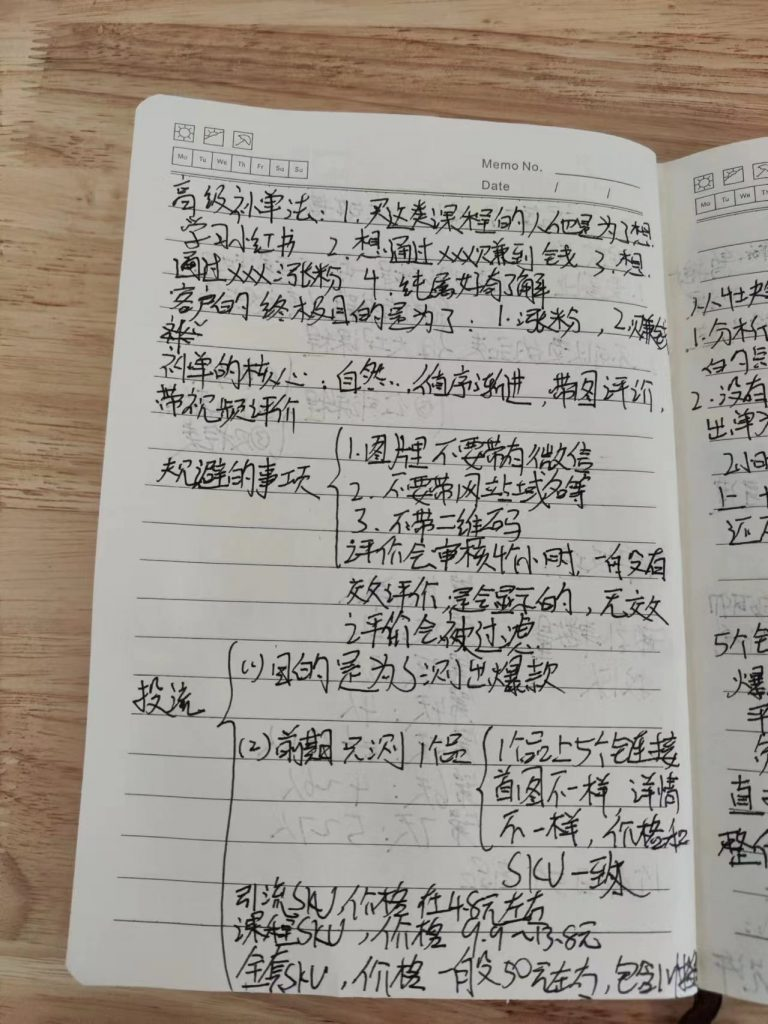 Mo Tu We Th Fr Sa Su
Memo No.
Date / /
高级补单法：1. 买这类课程的人他是为了想
学习小红书 2. 想通过xxx赚到钱 3. 想
通过xxx涨粉 4. 纯属好奇了解
客户的终极目的是为了：1. 涨粉，2. 赚钱
补单的核心：自然…，循序渐进，带图评价，
带视频评价
规避的事项
1. 图片里不要带有微信
2. 不要带网站域名等
3. 不带二维码
评价会审核4个小时，一般有
效评价是会显示的，无效
评价会被过滤
投流
(1) 目的是为了测出爆款
(2) 前期只测1个品
1个品上5个链接
首图不一样 详情
不一样，价格和
SKU一致
引流SKU，价格在4.8元左右
课程SKU，价格9.9~13.8元
全套SKU，价格一般50元左右，包含
Mo Tu We Th
1. 分析
2. 没有
出单
5个
爆
整个